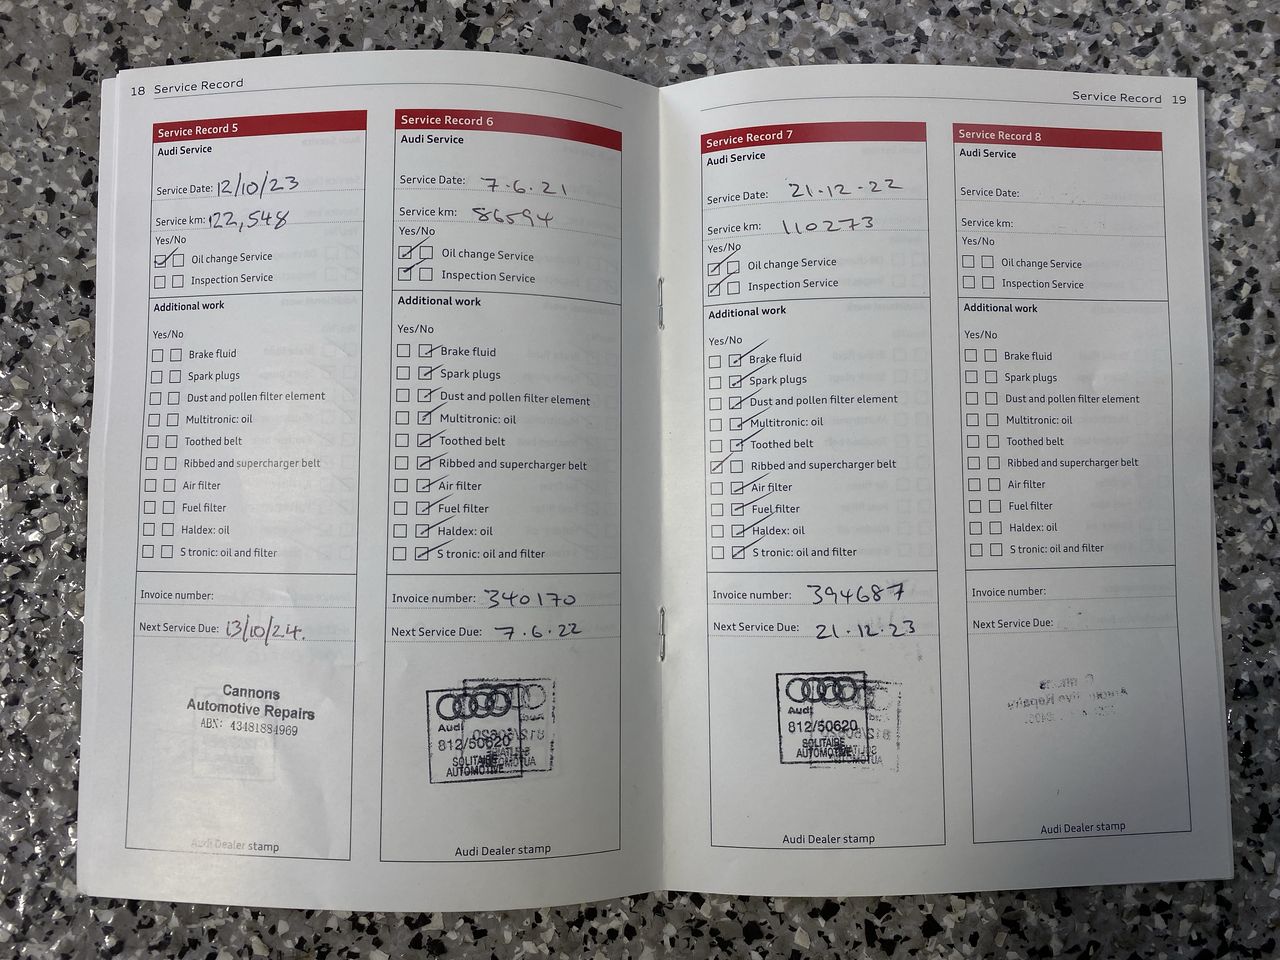 18 Service Record
Service Record 5
Audi Service
Service Date: 12/10/23
Service km: 122,548
Yes/No
Oil change Service
Inspection Service
Additional work
Yes/No
Brake fluid
Spark plugs
Dust and pollen filter element
Multitronic: oil
Toothed belt
Ribbed and supercharger belt
Air filter
Fuel filter
Haldex: oil
S tronic: oil and filter
Invoice number:
Next Service Due: 13/10/24.
Cannons
Automotive Repairs
ABN: 43481884969
Audi Dealer stamp
Service Record 6
Audi Service
Service Date: 7.6.21
Service km: 86594
Yes/No
Oil change Service
Inspection Service
Additional work
Yes/No
Brake fluid
Spark plugs
Dust and pollen filter element
Multitronic: oil
Toothed belt
Ribbed and supercharger belt
Air filter
Fuel filter
Haldex: oil
S tronic: oil and filter
Invoice number: 340170
Next Service Due: 7.6.22
Audi
812/50620
SOLITAIRE
AUTOMOTIVE
Audi Dealer stamp
Service Record 19
Service Record 7
Audi Service
Service Date: 21.12.22
Service km: 110273
Yes/No
Oil change Service
Inspection Service
Additional work
Yes/No
Brake fluid
Spark plugs
Dust and pollen filter element
Multitronic: oil
Toothed belt
Ribbed and supercharger belt
Air filter
Fuel filter
Haldex: oil
S tronic: oil and filter
Invoice number: 394687
Next Service Due: 21.12.23
Audi
812/50620
SOLITAIRE
AUTOMOTIVE
Audi Dealer stamp
Service Record 8
Audi Service
Service Date:
Service km:
Yes/No
Oil change Service
Inspection Service
Additional work
Yes/No
Brake fluid
Spark plugs
Dust and pollen filter element
Multitronic: oil
Toothed belt
Ribbed and supercharger belt
Air filter
Fuel filter
Haldex: oil
S tronic: oil and filter
Invoice number:
Next Service Due:
Audi Dealer stamp